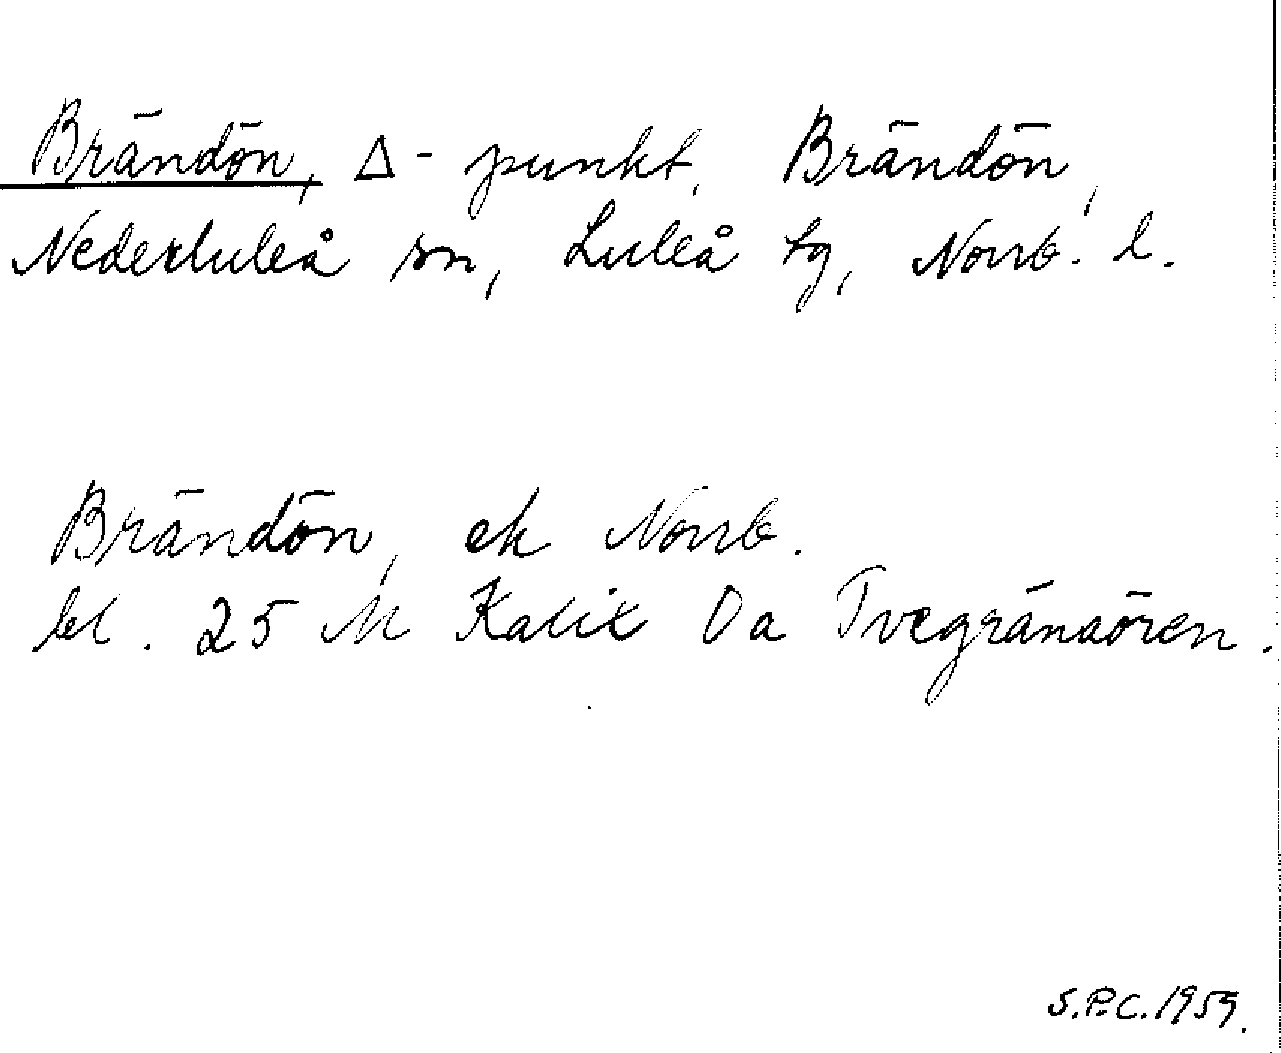 Brändön, Δ-punkt, Brändön,
Nederluleå sn, Luleå tg, Norrb. l.
Brändön, ek Norrb.
bl. 25 M Kalix Da Tvegränaören.
S.P.C. 1959.